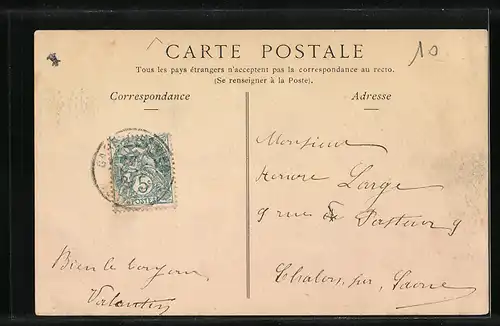 10
CARTE POSTALE
Tous les pays étrangers n'acceptent pas la correspondance au recto.
(Se renseigner à la Poste).
Correspondance
Adresse
5
POSTES
Monsieur
Large
9 rue Pasteur 9
Bien le bonjour
Valentin
Chalon sur Saone